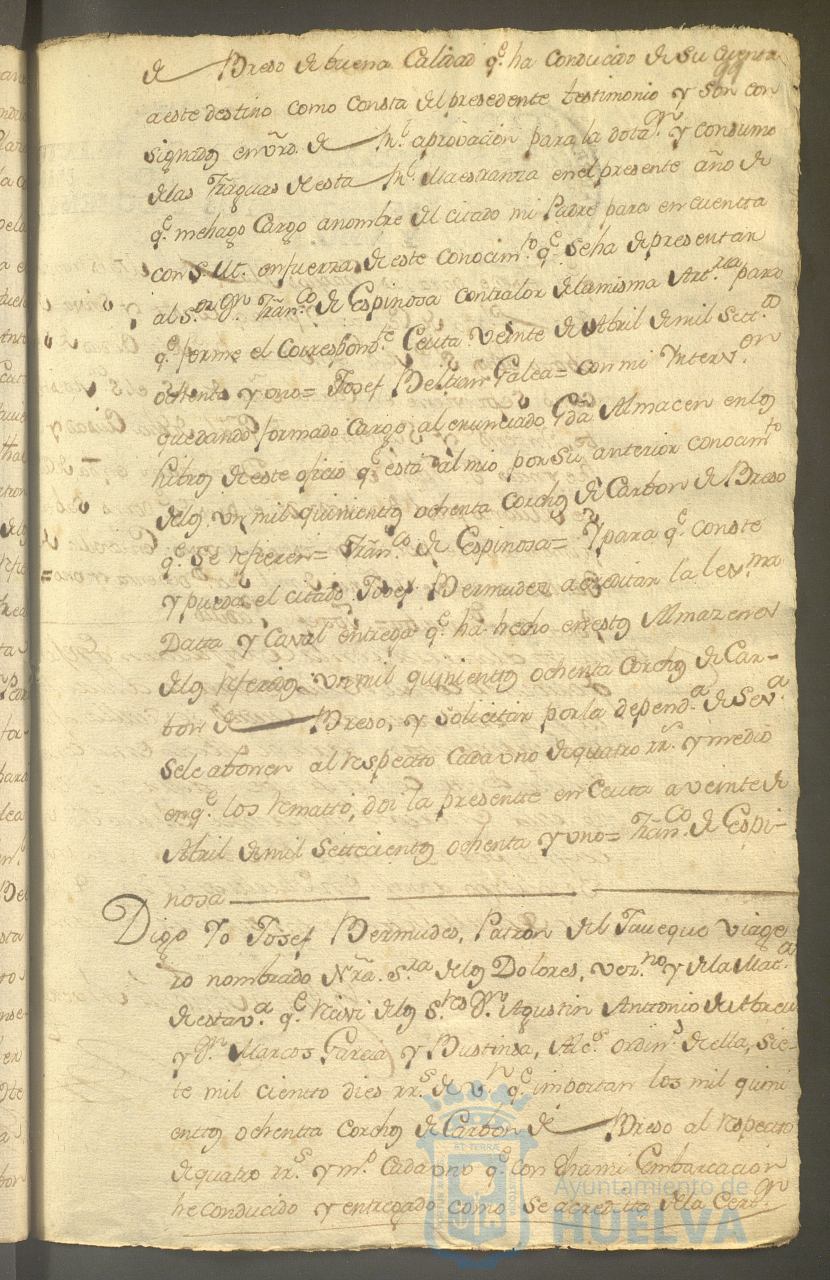 de Breso de buena Calidad q.e ha conducido de su cuenta
a este destino como consta del presedente testimonio y son con
signados en vrd. de Rl. aprovacion para la dota.on y consumo
delas fraguas de esta Rl. Maestranza en el presente año de
q.e me hago Cargo a nombre del citado mi Padre para en cuenta
con S. M. en fuerza de este conocim.to q.e se ha de presentar
al S.or D.n Fran.co de Espinosa contralor de la misma Art.ria para
q.e forme el Correspond.te Ceuta veinte de Abril de mil Sett.os
ochenta y uno= Josef Beltran Galea= con mi Ynterv.on
quedando formado Cargo al enunciado Gda Almacen en los
Libros de este oficio q.e está al mio por su anterior conocim.to
delos un mil quinientos ochenta Corchos de Carbon de Breso
q.e se refieren= Fran.co de Espinosa= Y para q.e conste
y pueda el citado Josef Bermudez acreditar la lex.ma
Datta y Caval entrega q.e ha hecho en estos Almazenes
delos referidos un mil quinientos ochenta Corchos de Car-
bon de Breso, y solicitar por la depend.a de Sev.a
sele abonen al respecto Cada uno de quatro rr.s y medio
en q.e los rematto, doi la presente en Ceuta a veinte de
Abril de mil Settecientos ochenta y uno= Fran.co de Espi-
nosa
Digo Yo Josef Bermudes, Patron del Javeque viage
ro nombrado Nra. S.ra delos Dolores, vez.no y dela Mat.a
de esta v.a q.e Recivi delos S.res D.n Agustin Antonio de Abreu
y D.n Marcos Garcia y Bustinsa, Alc.s ordin.s de ella, sie-
te mil ciento dies rr.s de v.n q.e importan los mil quini
entos ochentta corchos de Carbon de Breso al respecto
de quatro rr.s y m.o Cada uno q.e con dha mi Embarcacion
he conducido y entregado como se acredita dela Cert.on
Ayuntamiento de
HUELVA